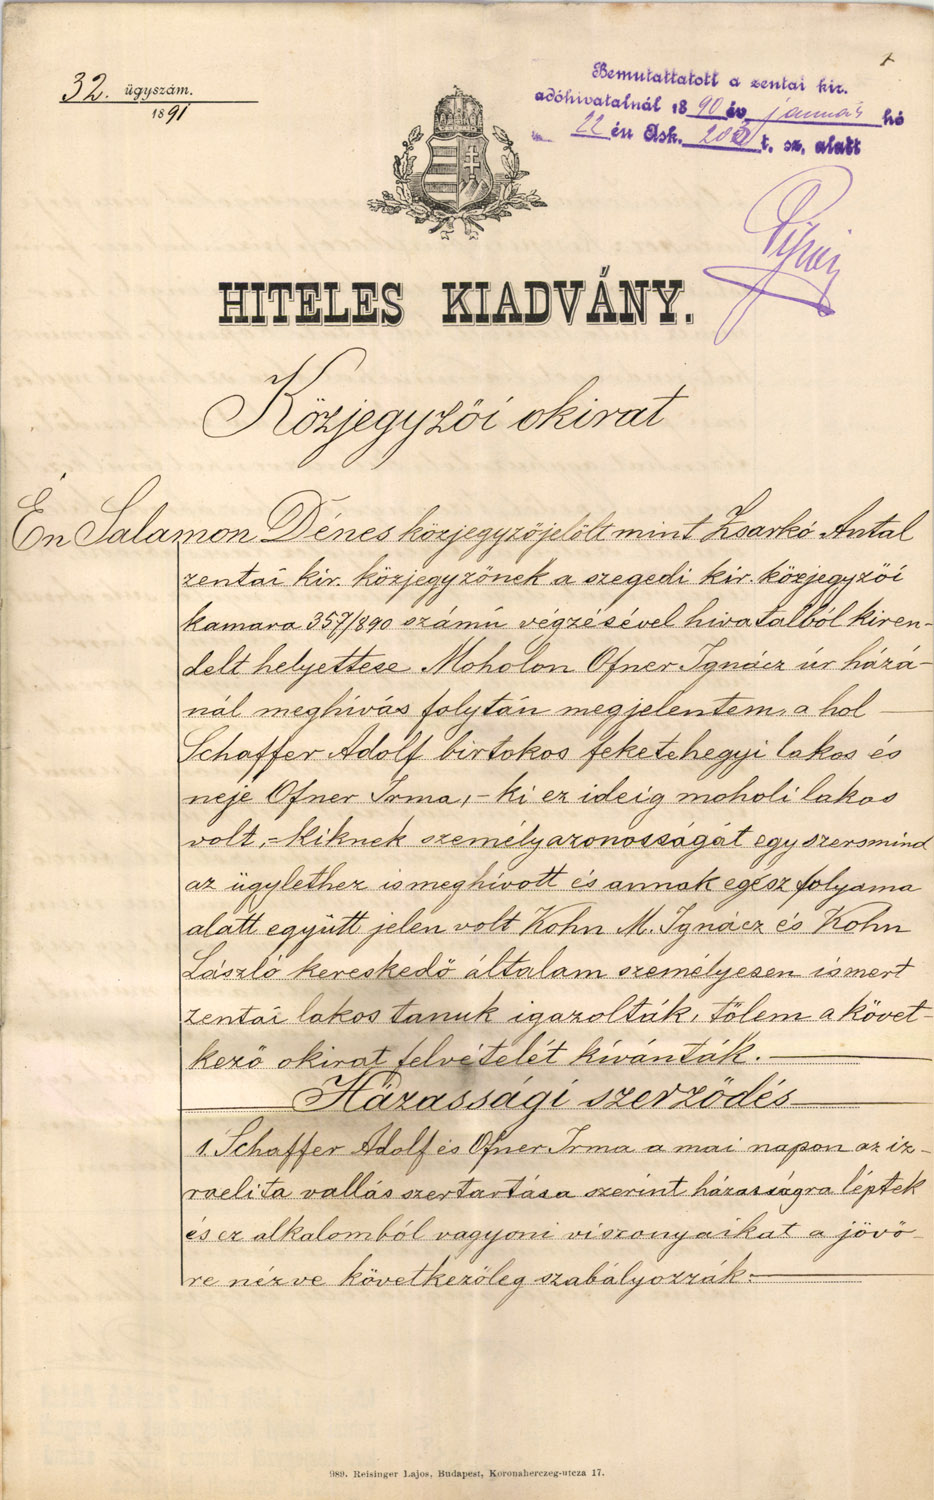 32. ügyszám.
1891
1
Bemutattatott a zentai kir.
adóhivatalnál 1890 év január hó
22 én Ask. 203 t. sz. alatt
HITELES KIADVÁNY.
Közjegyzői okirat
Én Salamon Dénes közjegyzőjelölt mint Zsarkó Antal
zentai kir. közjegyzőnek a szegedi kir. közjegyzői
kamara 357/890 számú végzésével hivatalból kiren-
delt helyettese Moholon Ofner Ignácz úr házá-
nál meghívás folytán megjelentem, a hol
Schaffer Adolf birtokos feketehegyi lakos és
neje Ofner Irma, - ki ez ideig moholi lakos
volt, = kiknek személyazonosságát egyszersmind
az ügylethez is meghívott és annak egész folyama
alatt együtt jelen volt Kohn M. Ignácz és Kohn
László kereskedő általam személyesen ismert
zentai lakos tanuk igazolták, tőlem a követ-
kező okirat felvételét kívánták.
Házassági szerződés
1. Schaffer Adolf és Ofner Irma a mai napon az iz-
raelita vallás szertartása szerint házasságra léptek
és ez alkalomból vagyoni viszonyaikat a jövő-
re nézve következőleg szabályozzák:
989. Reisinger Lajos, Budapest, Koronaherczeg-utcza 17.